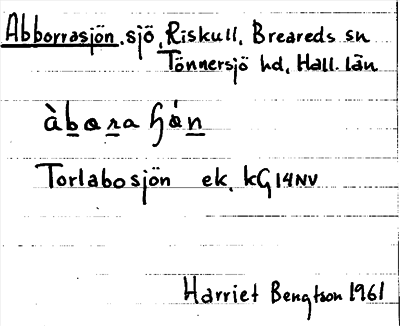 Abborrasjön, sjö, Riskull, Breareds sn
Tönnersjö hd, Hall. län
àbora ɧón
Torlabosjön ek. kG 14NV
Harriet Bengtson 1961